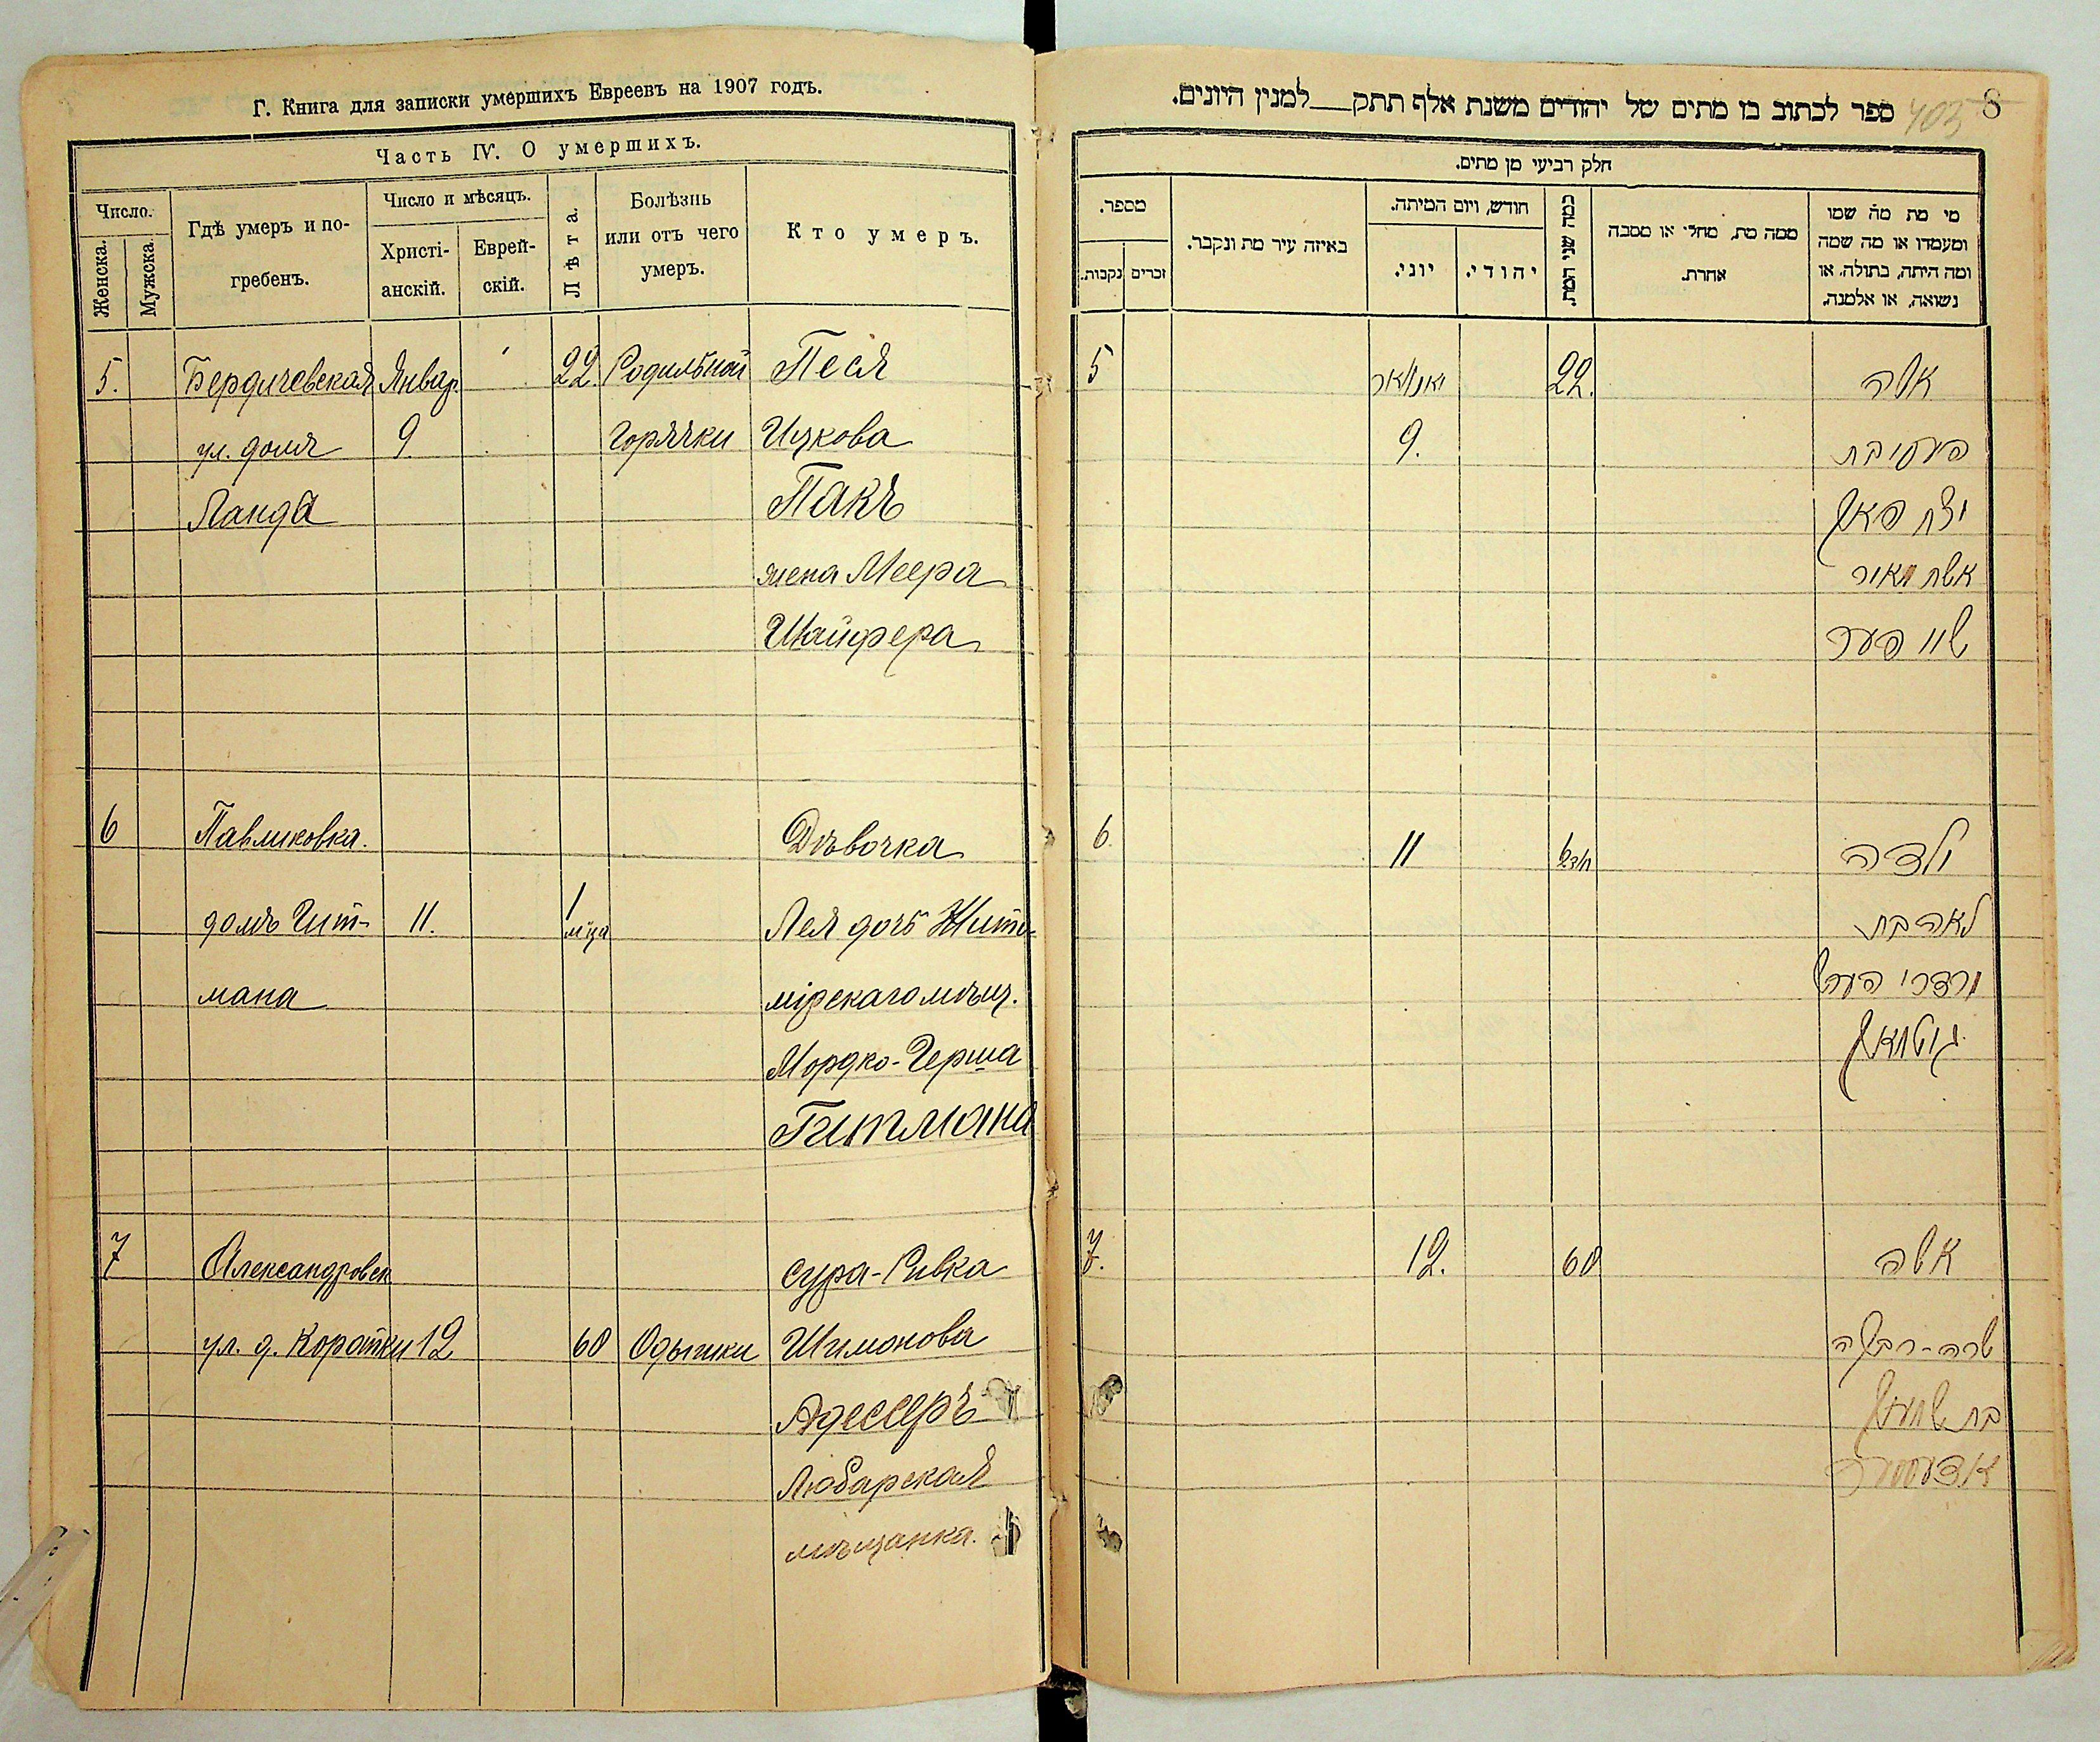 Г. Книга для записки умершихъ Евреевъ на 1907 годъ.
Часть IV. О умершихъ.
Число.
Женска.
Мужска.
Гдѣ умеръ и по-
гребенъ.
Число и мѣсяцъ.
Христі-
анскій.
Еврей-
скій.
Лѣта.
Болѣзнь
или отъ чего
умеръ.
Кто умеръ.
5. Бердичевская Январ. 22 Родильной Песя
ул. домъ 9 Горячки Ицкова
Ланда Пакъ
жена Меера
Шайфера
6 Павликовка. Дѣвочка
домъ Гит- 11. 1 м-ца Лея дочь Жито-
мана мірскаго мѣщ.
Мордко-Герша
Гитмана
7 Александровск Сура-Ривка
ул. д. Коротки 12 60 Одышки Шимонова
Адессеръ
Любарская
мѣщанка.
ספר לכתוב בו מתים של יהודים משנת אלף תתק למנין היונים.
403 8
חלק רביעי מן מתים.
מספר.
נקבות.
זכרים
באיזה עיר מת ונקבר.
חודש, ויום המיתה.
יוני.
יהודי.
כמה שני המת.
ממה מת, מחלי או מסבה
אחרת.
מי מת מה שמו
ומעמדו או מה שמה
ומה היתה, בתולה, או
נשואה, או אלמנה.
5 יאנואר 22. אשה
9. פעסי בת
יצח פאק
אשת מאיר
שייפער
6. 11 ילדה
לאה בת
מרדכי הערש
גיטמאן
7. 12. 60 אשה
שרה-רבקה
בת שמעון
אדעסער